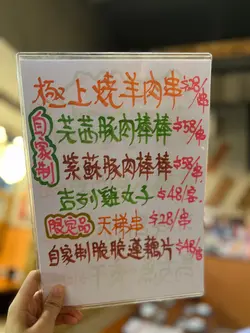 極上燒羊肉串$28/串
自家制
芫茜豚肉棒棒$58/串
紫蘇豚肉棒棒$58/串
吉列雞丸子$48/客
限定品 天梯串$28/串
自家制脆脆蓮藕片$48/客